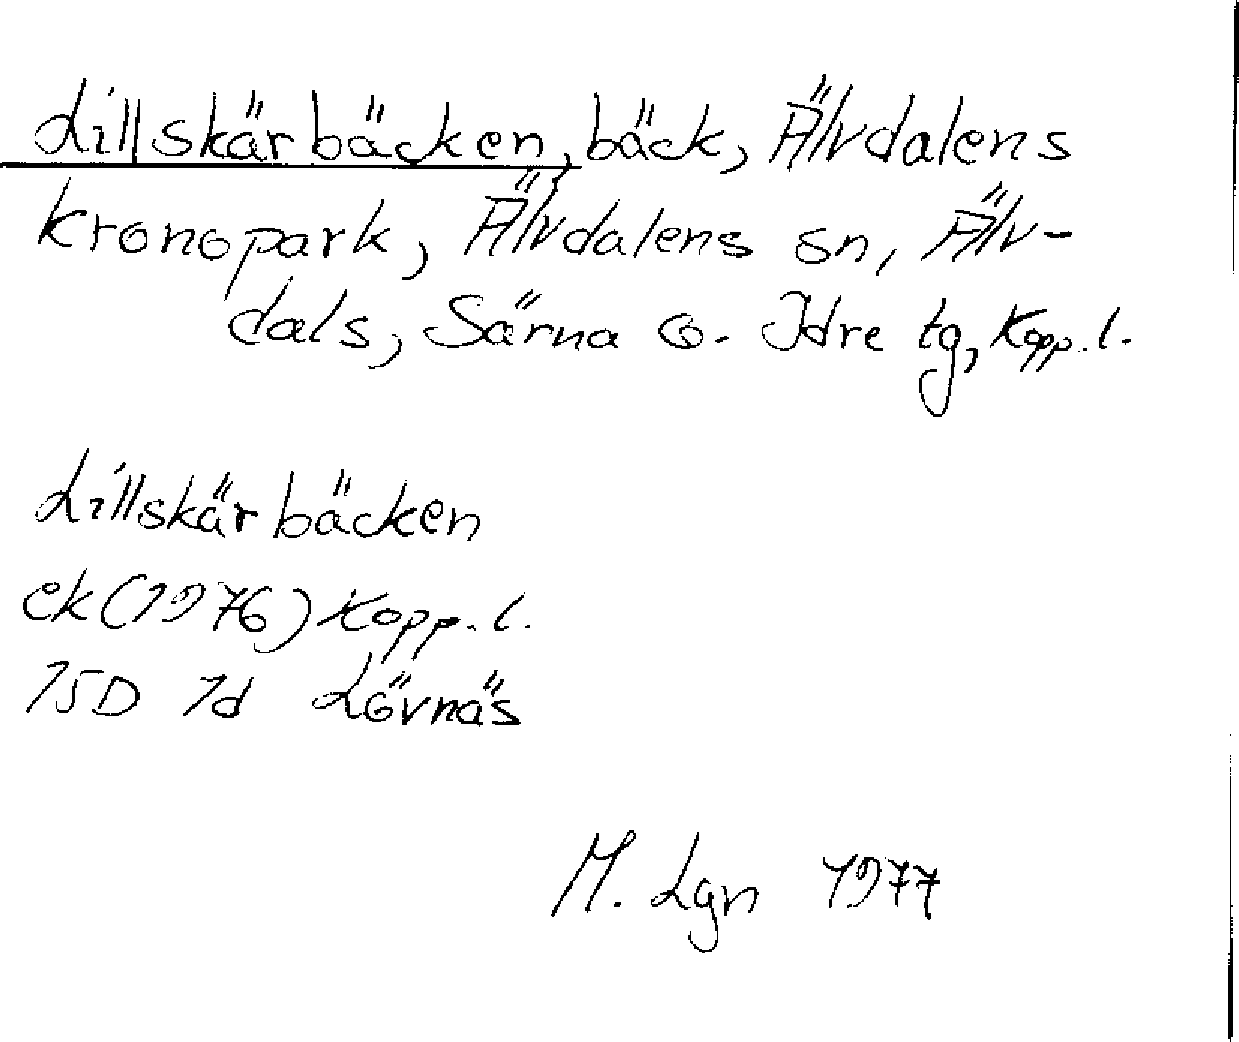 Lillskärbäcken, bäck, Älvdalens
kronopark, Älvdalens sn, Älv-
dals, Särna o. Idre tg, Kopp. l.
Lillskärbäcken
ek (1976) Kopp. l.
15D 1d Lövnäs
M. Lgn 1977